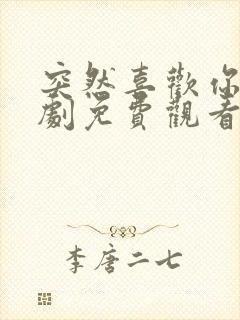 突然喜歡你
劇免費觀看
李唐二七